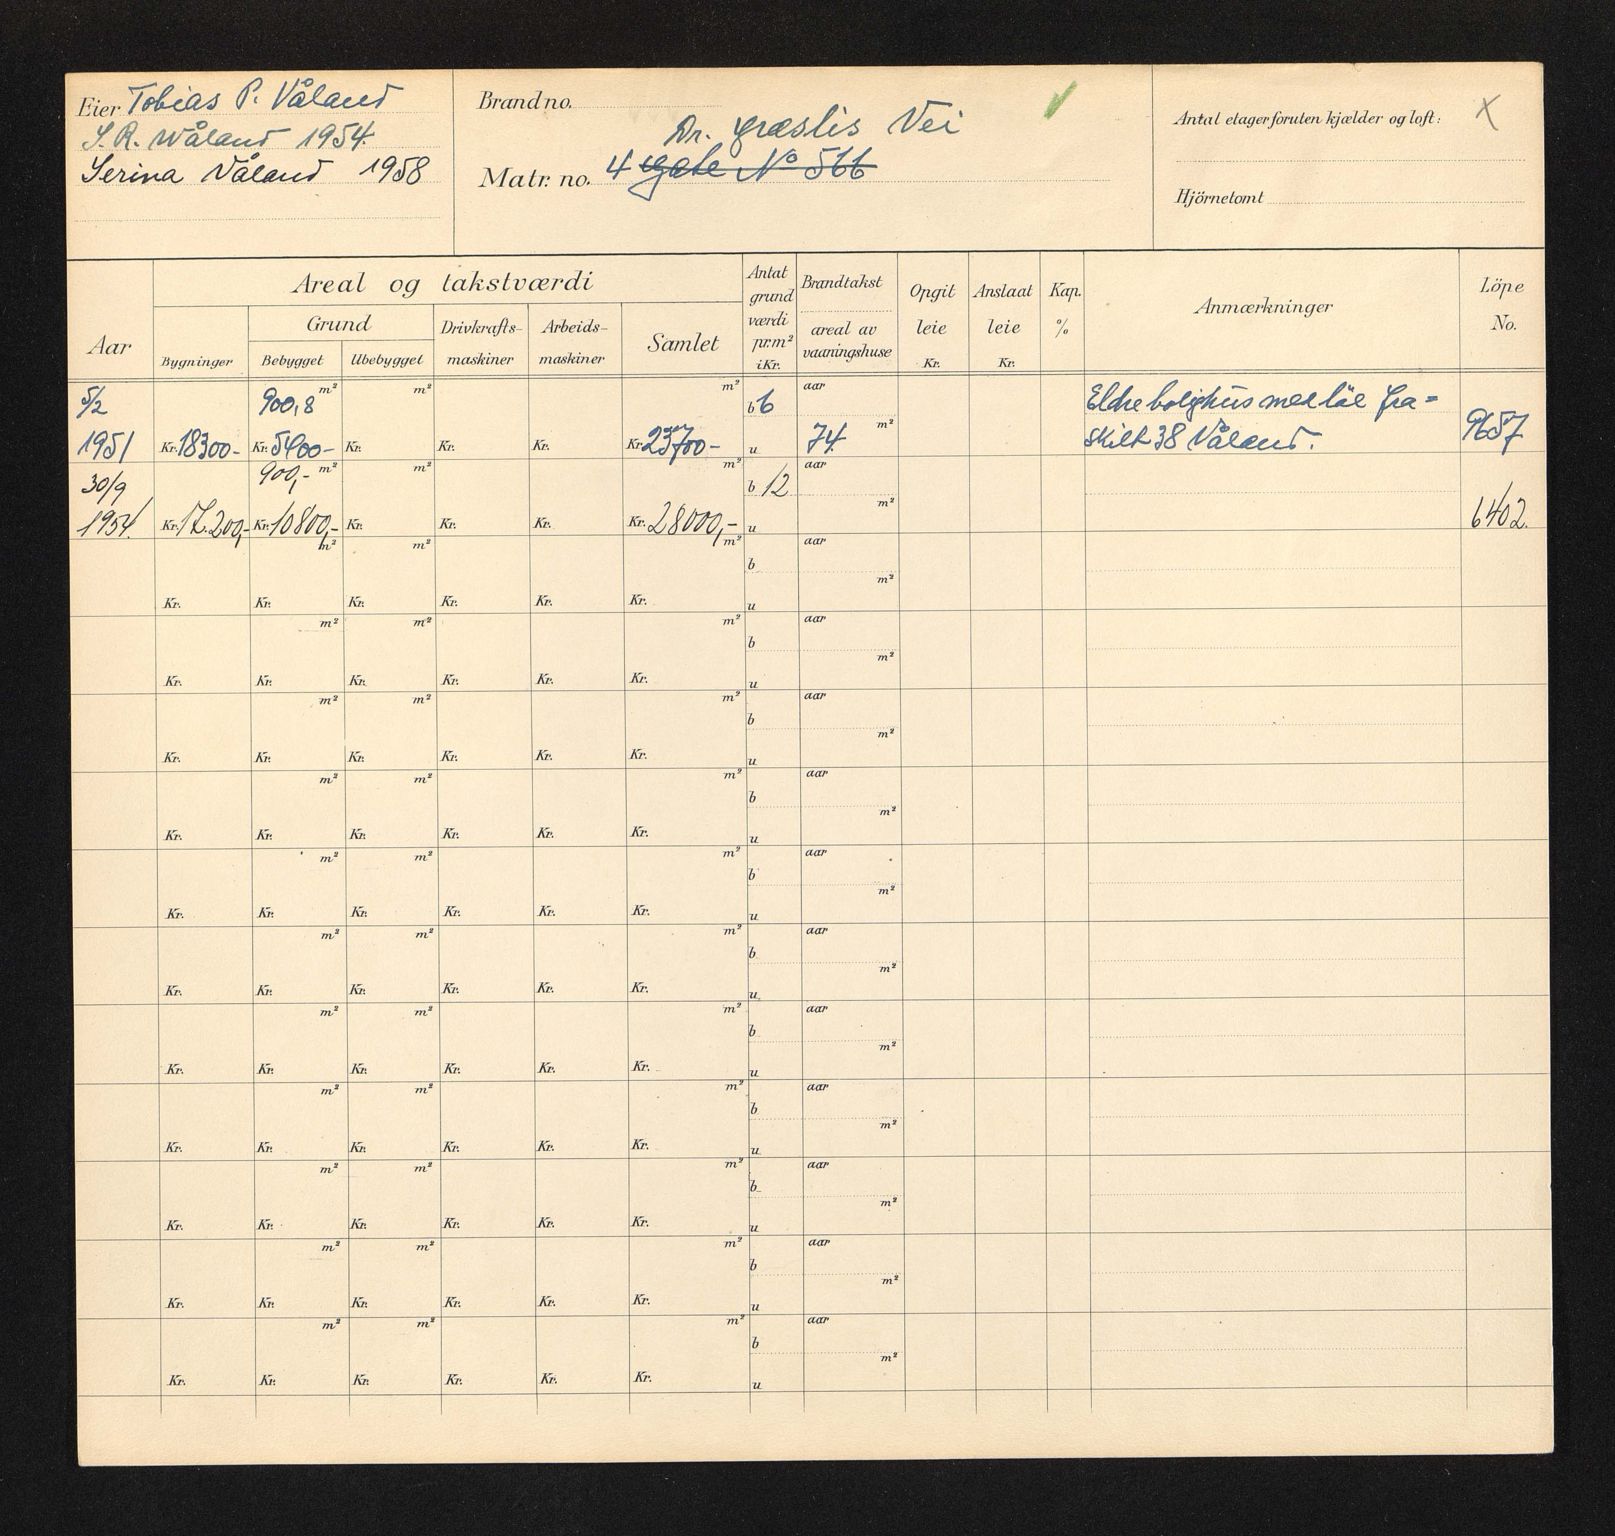 Eier Tobias P. Våland
S. R. Wåland 1954.
Serina Våland 1958
Brand no.
Dr. Græslis Vei
Matr. no. 4 gate No 566
Antal etager foruten kjælder og loft: X
Hjörnetomt
Aar
Areal og takstværdi
Bygninger
Grund
Bebygget
Ubebygget
Drivkrafts-
maskiner
Arbeids-
maskiner
Samlet
Antat
grund
værdi
pr.m²
i Kr.
Brandtakst
areal av
vaaningshuse
Opgit
leie
Kr.
Anslaat
leie
Kr.
Kap.
%
Anmærkninger
Löpe
No.
5/2 900,8 m² m² m² b 6 aar Eldre bolighus med löe fra=
1951 Kr. 18300- Kr. 5400- Kr. Kr. Kr. Kr. 23700- u 74. m² skilt 38 Våland. 9657
30/9 900,- m² m² m² b 12 aar
1954. Kr. 17.200,- Kr. 10800,- Kr. Kr. Kr. Kr. 28000,- u m² 6402.
m² m² m² b aar
Kr. Kr. Kr. Kr. Kr. Kr. u m²
m² m² m² b aar
Kr. Kr. Kr. Kr. Kr. Kr. u m²
m² m² m² b aar
Kr. Kr. Kr. Kr. Kr. Kr. u m²
m² m² m² b aar
Kr. Kr. Kr. Kr. Kr. Kr. u m²
m² m² m² b aar
Kr. Kr. Kr. Kr. Kr. Kr. u m²
m² m² m² b aar
Kr. Kr. Kr. Kr. Kr. Kr. u m²
m² m² m² b aar
Kr. Kr. Kr. Kr. Kr. Kr. u m²
m² m² m² b aar
Kr. Kr. Kr. Kr. Kr. Kr. u m²
m² m² m² b aar
Kr. Kr. Kr. Kr. Kr. Kr. u m²
m² m² m² b aar
Kr. Kr. Kr. Kr. Kr. Kr. u m²
m² m² m² b aar
Kr. Kr. Kr. Kr. Kr. u m²